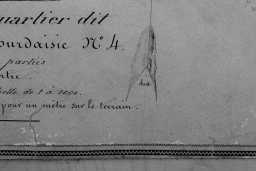 quartier dit
ourdaisie N° 4.
parties
ntre.
elle de 1 à
pour un mètre sur le terrain.